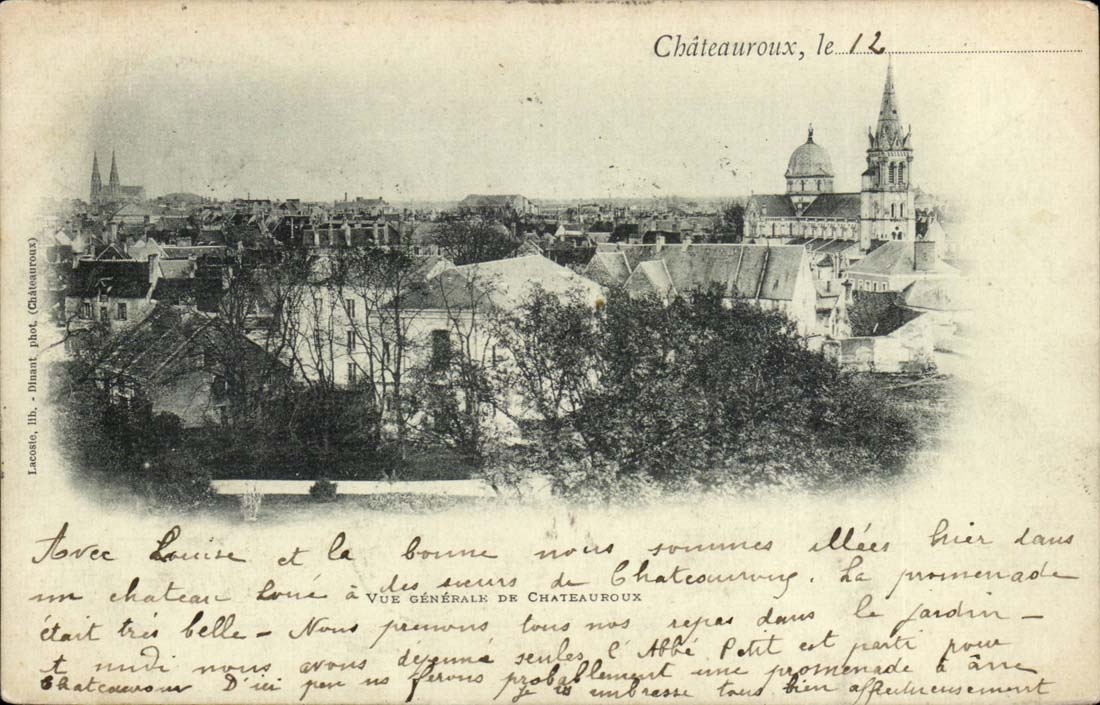 Châteauroux, le 12
Lacoste, lib. - Dinant phot. (Châteauroux)
Avec Louise et la bonne nous sommes allées hier dans
un chateau loué à des sœurs de Chateauroux. La promenade
VUE GÉNÉRALE DE CHATEAUROUX
était très belle - Nous prenons tous nos repas dans le jardin -
t midi nous avons dejeuné seules l'Abbé Petit est parti pour
Chateauroux D'ici peu ns ferons probablement une promenade à âne
je vs embrasse tous bien affectueusement